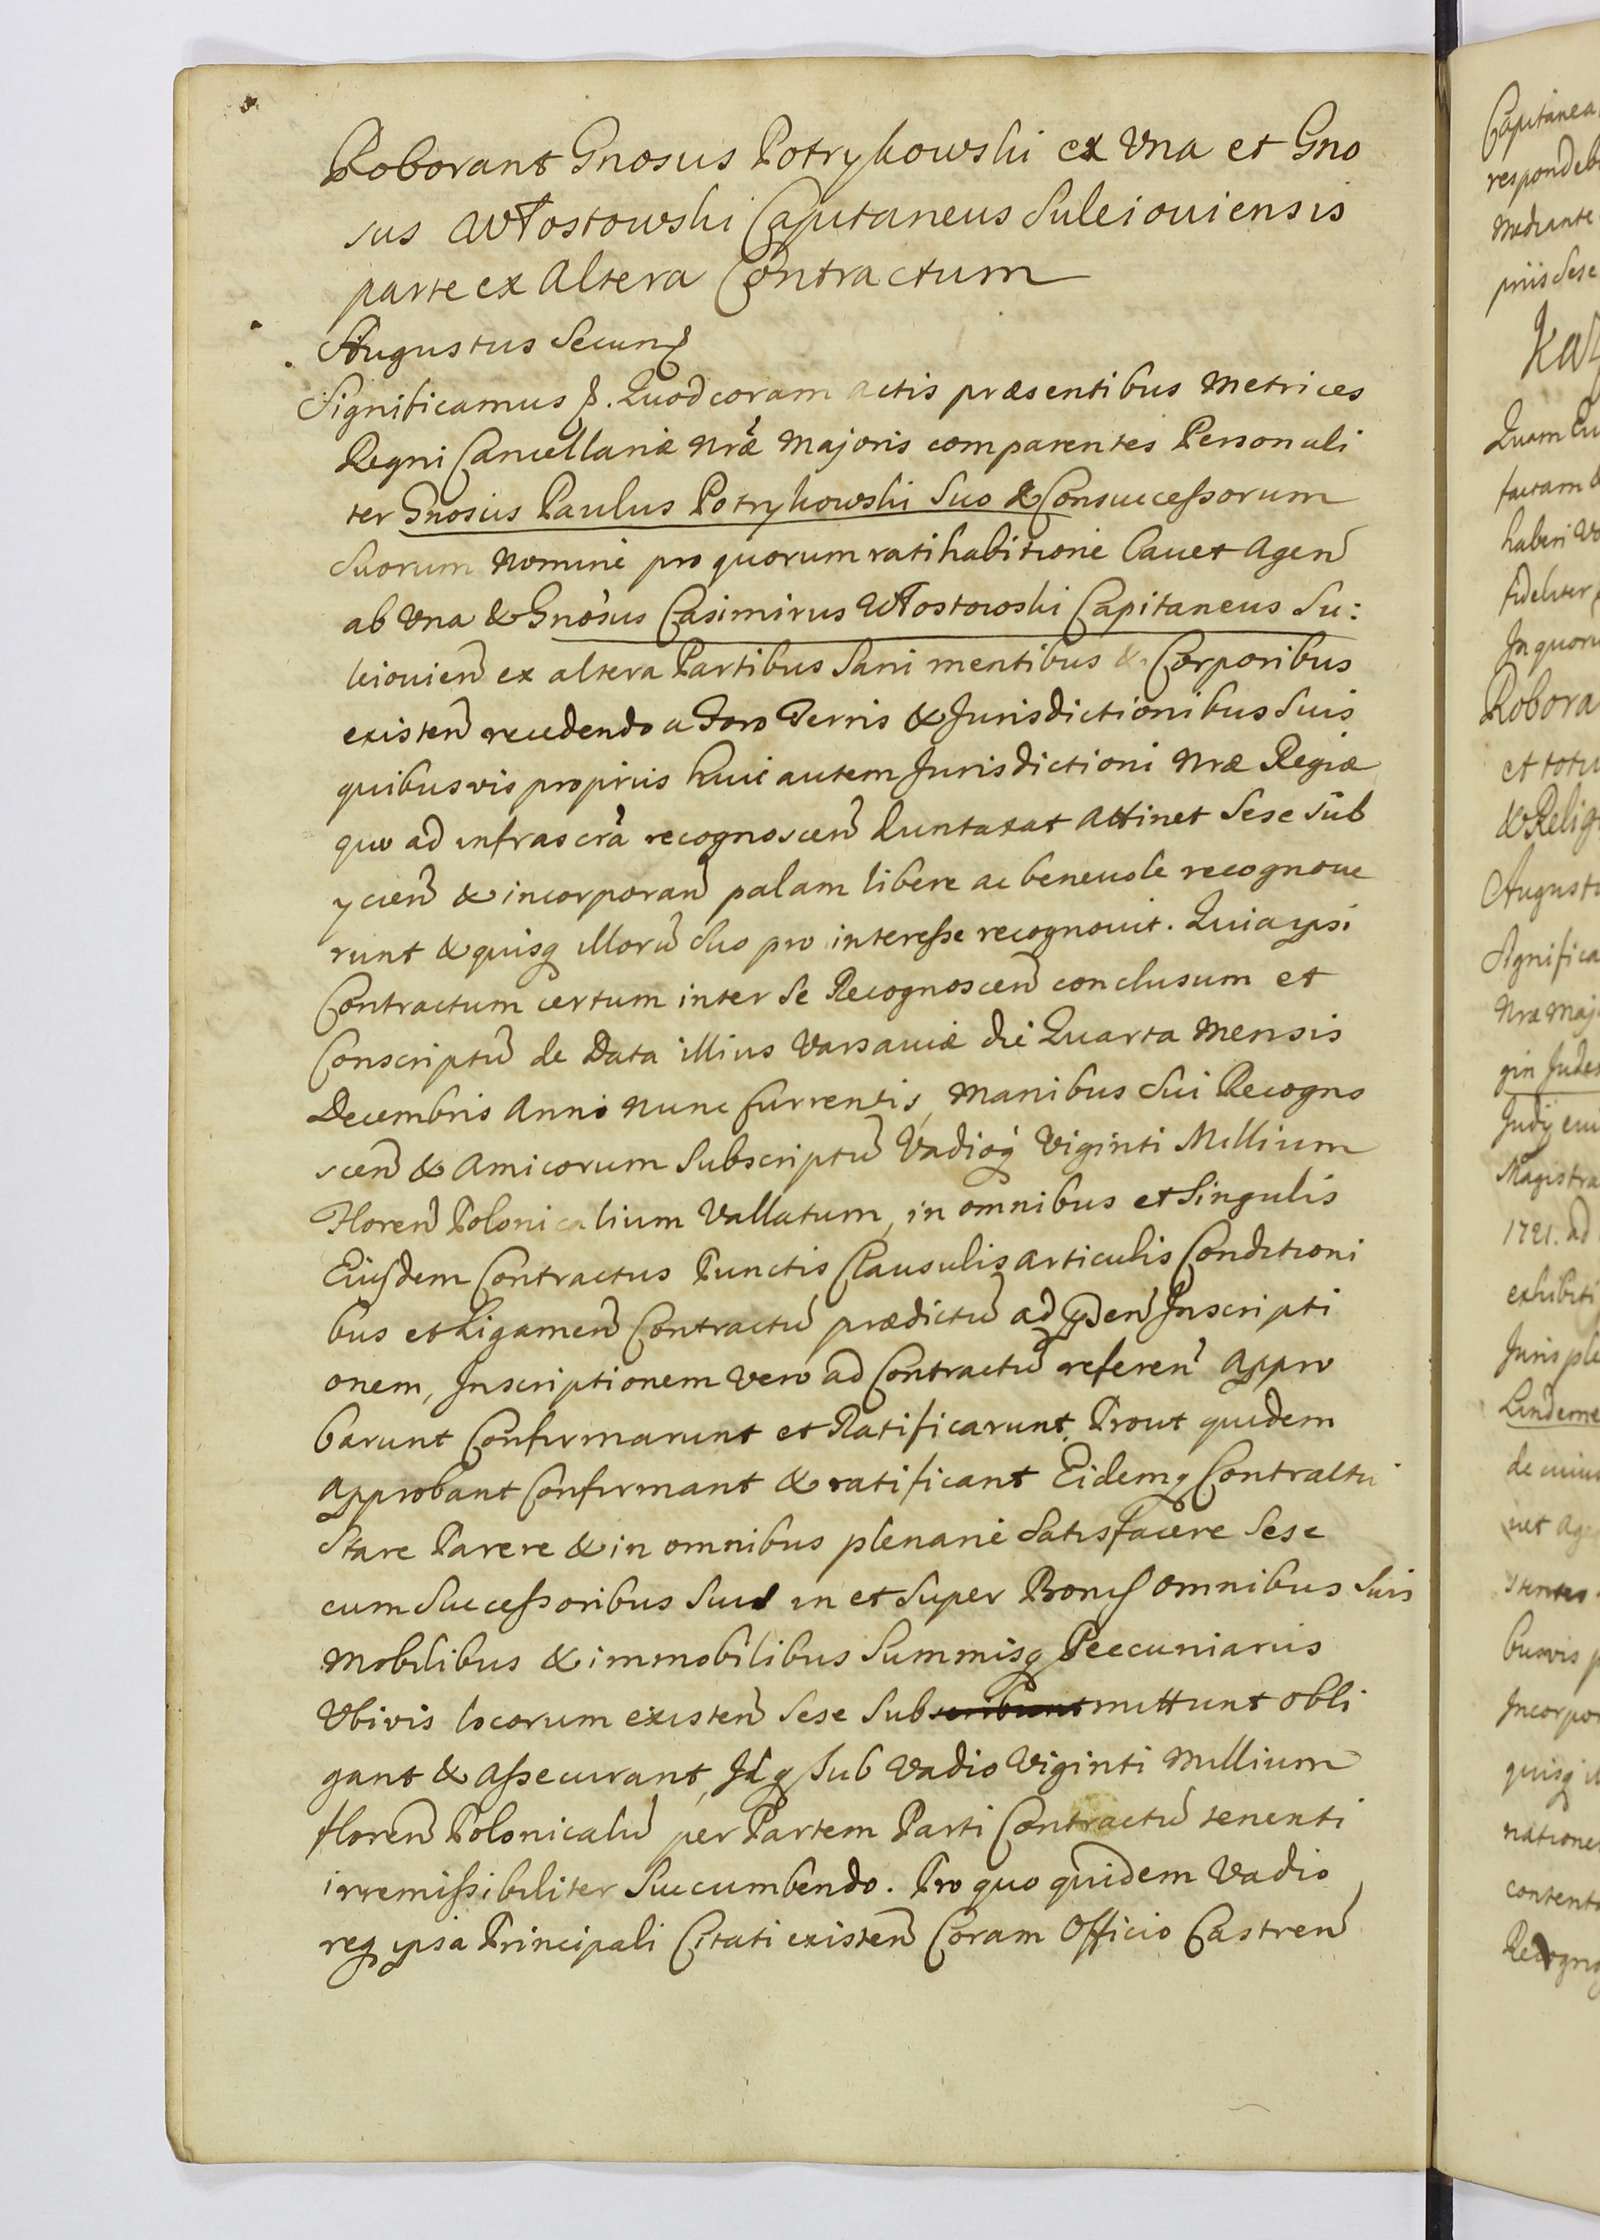 Roborant Gnosus Potrykowski ex Vna et Gno
sus Włostowski Capitaneus Suleiouiensis
parte ex Altera Contractum
Augustus Secun
Significamus &. Quod coram actis præsentibus Metrices
Regni Cancellariæ Nræ Majoris comparentes Personali
ter Gnosus Paulus Potrykowski Suo & Consuccessorum
Suorum Nomine pro quorum ratihabitione Cauet Agen
ab Vna & Gnosus Casimirus Włostowski Capitaneus Su:
leiouien ex altera Partibus Sani mentibus & Corporibus
existen recedendo a Foro Terris & Jurisdictionibus Suis
quibusvis proprijs huic autem Jurisdictioni Nræ Regiæ
quo ad infrascra recognoscen duntaxat Attinet Sese Sub
ycien & incorporan palam libere ac beneuole recognoue
runt & quisq illoru Suo pro interesse recognouit. Quia ipsi
Contractum certum inter Se Recognoscen conclusum et
Conscriptu de Data illius Varsauiæ die Quarta Mensis
Decembris Anni nunc Currentis, Manibus Sui Recogno
scen & Amicorum Subscriptu Vadioq Viginti Millium
Floren Polonicalium Vallatum, in omnibus et Singulis
Eiusdem Contractus Punctis Clausulis articulis Conditioni
bus et Ligamen Contractu prædictu ad pden Inscripti
onem, Inscriptionem vero ad Contractu referen Appro
barunt Confirmarunt et Ratificarunt. Prout quidem
Approbant Confirmant & ratificant Eidemq Contractui
Stare Parere & in omnibus plenarie Satisfacere Sese
cum Successoribus Suis in et Super Bonis omnibus Suis
Mobilibus & immobilibus Summisq Peecuniariis
Vbivis locorum existen Sese Subscribunt mittunt obli
gant & Assecurant, Idq Sub Vadio Viginti Millium
floren Polonicaliu per Partem Parti Contractu tenenti
irremissibiliter Succumbendo. Pro quo quidem Vadio
req ipsa Principali Citati existen Coram Officio Castren
Capitanea
respondeb
Mediante
priis Sese
Quam Cu
factam &
haberi vo
fideliter
In quoru
Robora
et totiu
& Relig
Augustu
Significa
Nræ Maj
gin Judæ
Magistra
1721. ad
exhibiti
Juris ple
Lindeme
busvis p
Incorpor
quisq il
natione
content
Recogno